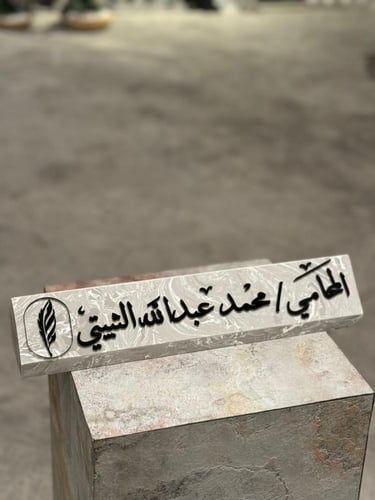 المحامي / محمد عبدالله الثبيتي